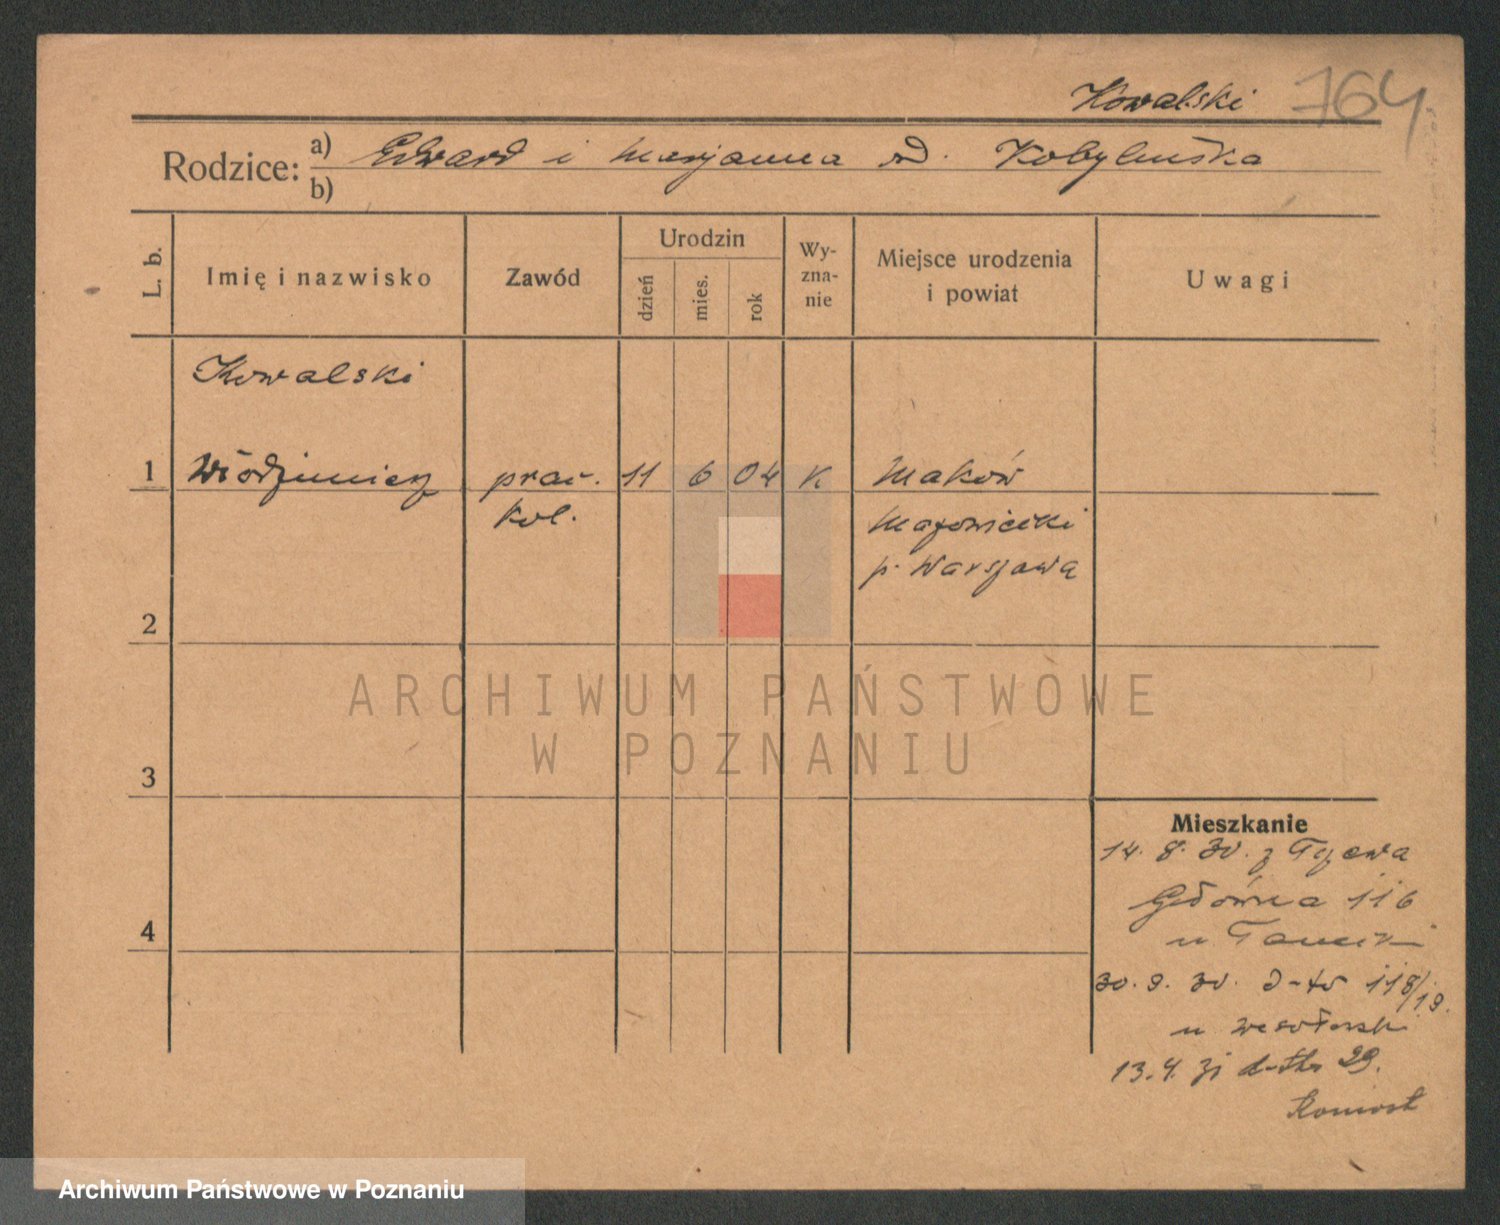 Kowalski 764
Rodzice: a) Edward i Marjanna rd. Kobylińska
b)
L. b.
Imię i nazwisko
Zawód
Urodzin
dzień
mies.
rok
Wy-
zna-
nie
Miejsce urodzenia
i powiat
Uwagi
Kowalski
1 Włodzimierz prac. 11 6 04 K Maków
kol. Mazowiecki
p. Warszawa
2
ARCHIWUM PAŃSTWOWE
W POZNANIU
3
Mieszkanie
14. 8. 30. z Tczewa
Główna 116
4
u
30. 9. 30. d-to 118/19.
u
13. 4. 31 d-tto 29.
Archiwum Państwowe w Poznaniu